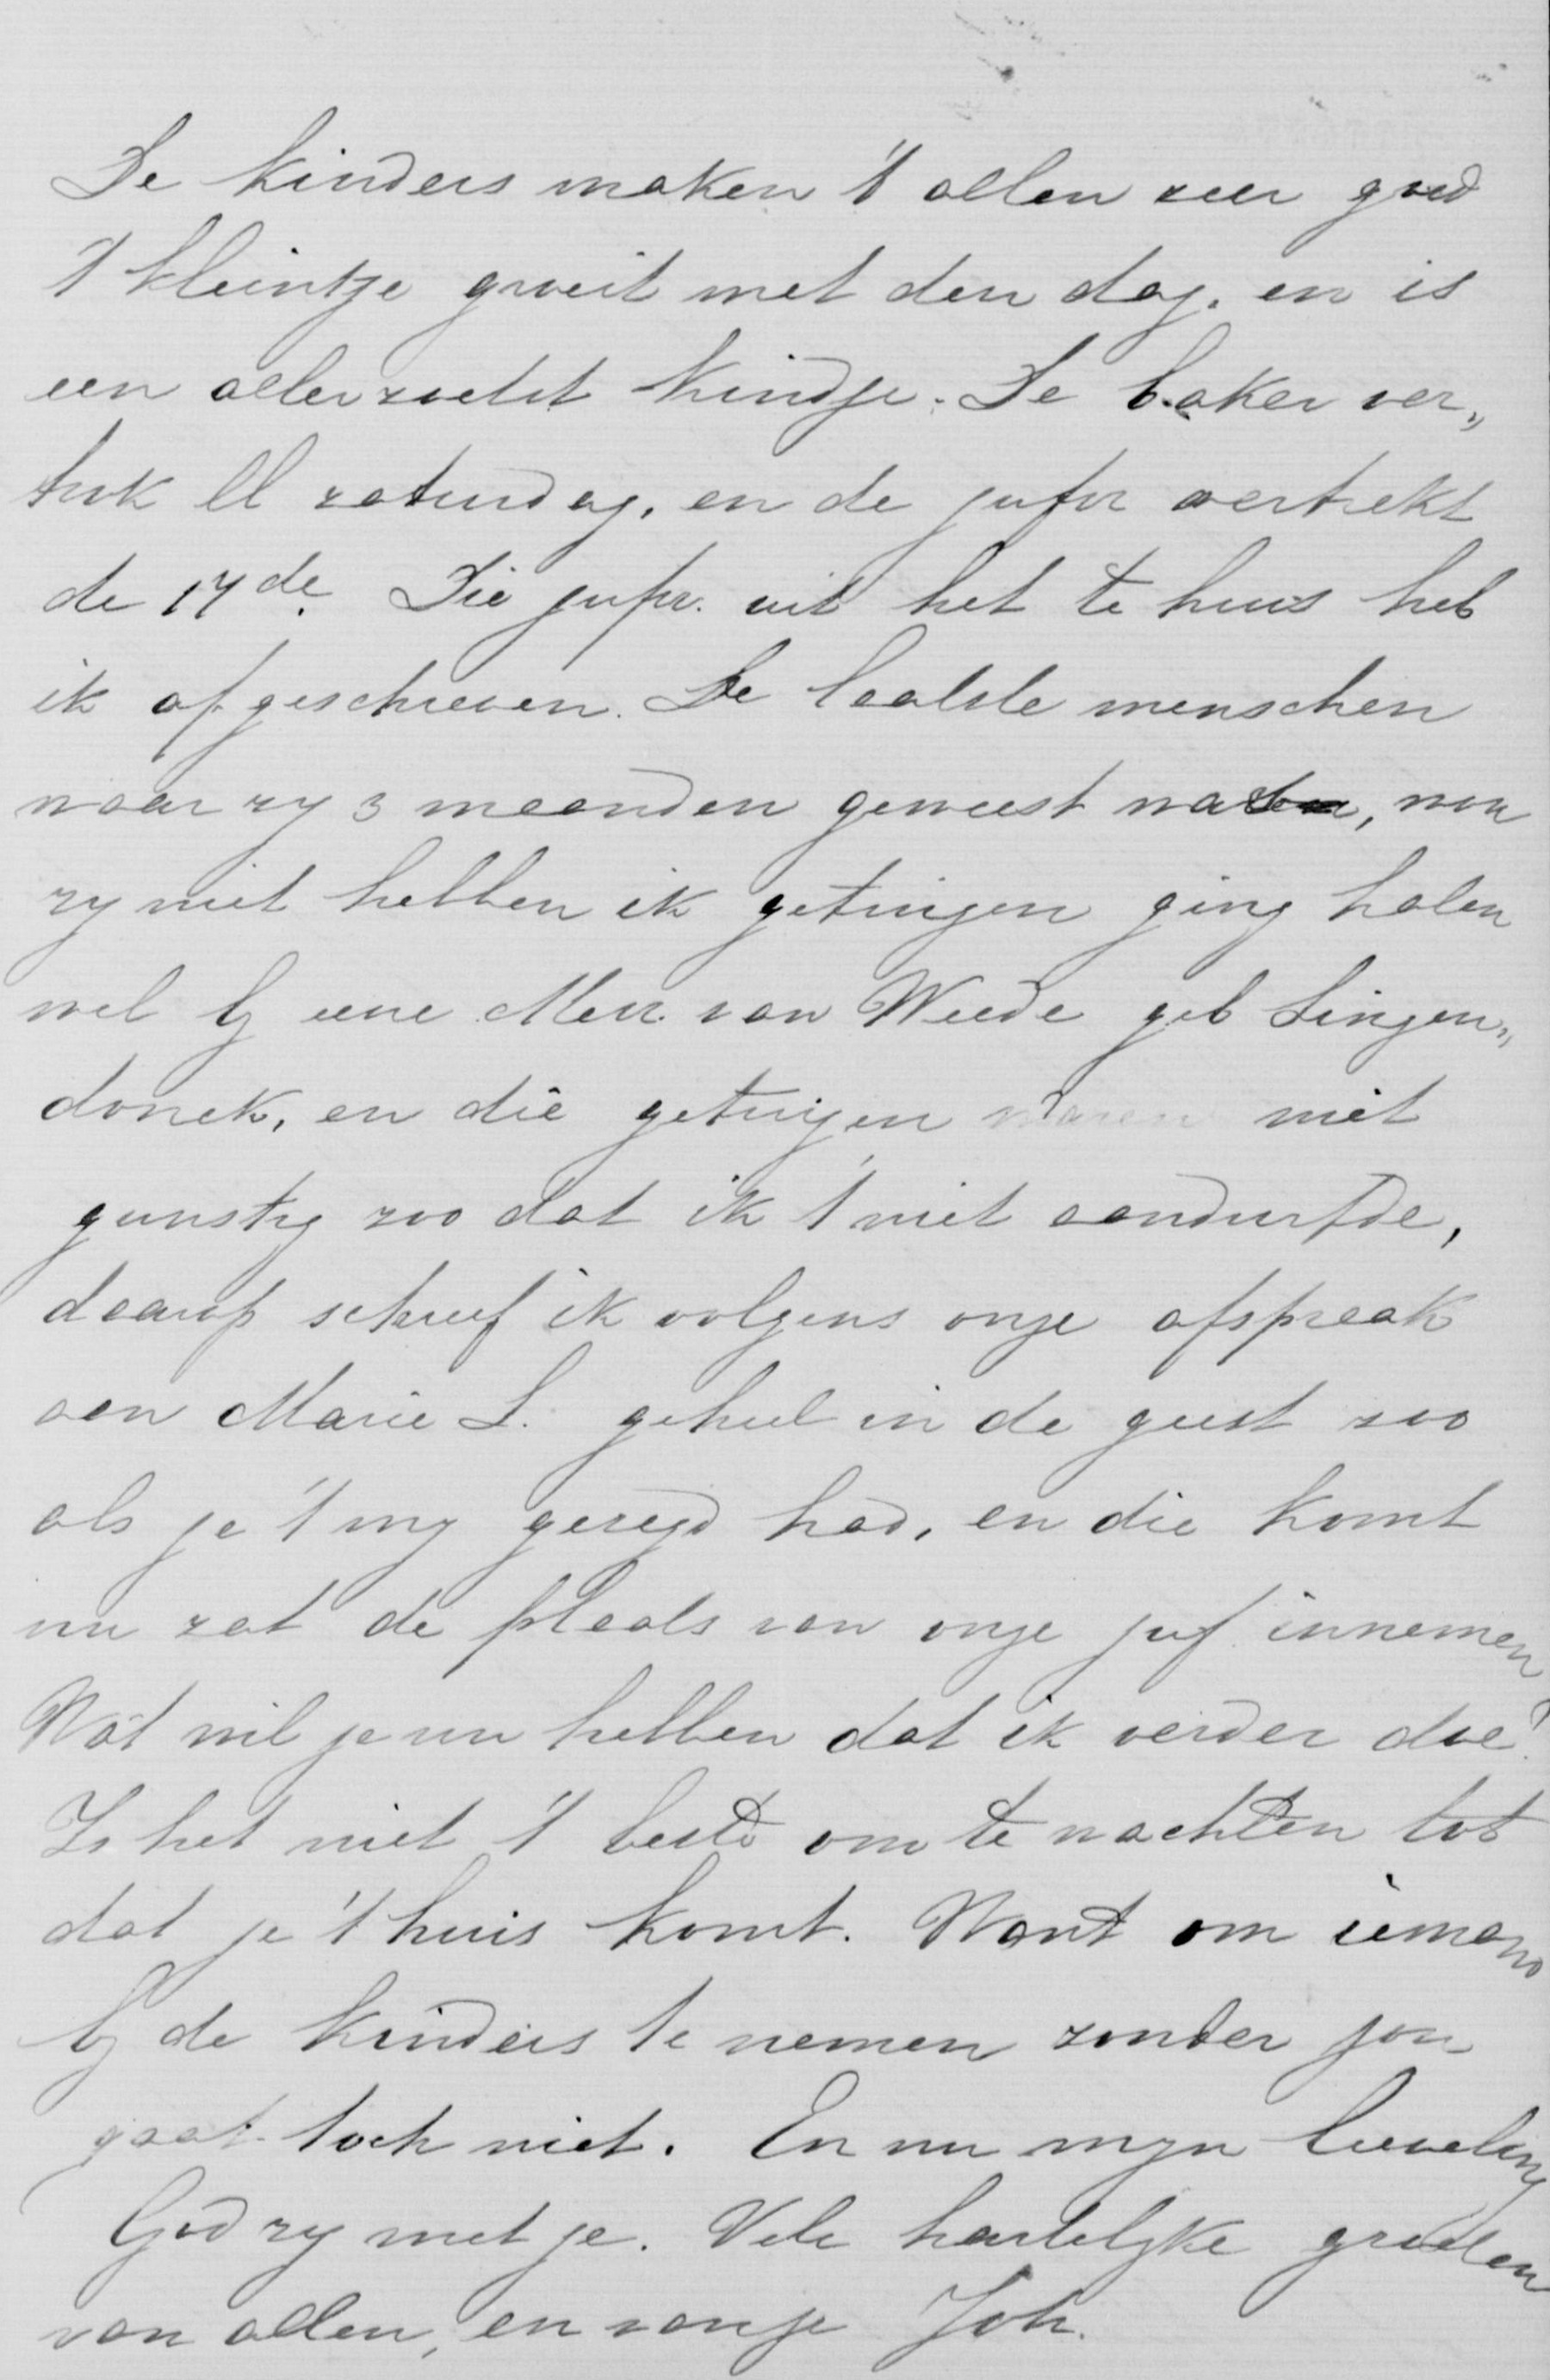 De kinders maken 't allen zeer goed
't kleintje groeit met den dag. en is
een allerzoetst kindje. De baker ver„
trok ll zaturdag, en de jufvr vertrekt
de 17de. Die jufvr. uit het te huis heb
ik afgeschreven. De laatste menschen
waar zy 3 maanden geweest was, wou
zy niet hebben ik getuigen ging halen
wel by eene Mevr. van Weede geb Singen„
donck, en die getuigen waren niet
gunstig zoo dat ik 't niet aandurfde,
daarop schreef ik volgens onze afspraak
aan Marie S. geheel in de geest zoo
als je 't my gezegd had, en die komt
nu zat de plaats van onze juf innemen
Wat wil je nu hebben dat ik verder doe?
Is het niet 't beste om te wachten tot
dat je 't huis komt. Want om iemand
by de kinders te nemen zonder jou
gaat toch niet. En nu myn lieveling
God zy met je. Vele hartelyke groeten
van allen, en van je Joh.